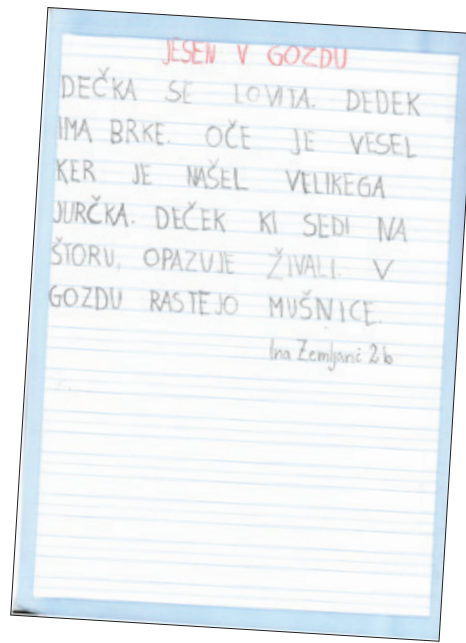 JESEN V GOZDU
DEČKA SE LOVITA. DEDEK
IMA BRKE. OČE JE VESEL
KER JE NAŠEL VELIKEGA
JURČKA. DEČEK KI SEDI NA
ŠTORU, OPAZUJE ŽIVALI. V
GOZDU RASTEJO MUŠNICE.
Ina Zemljarič 2b